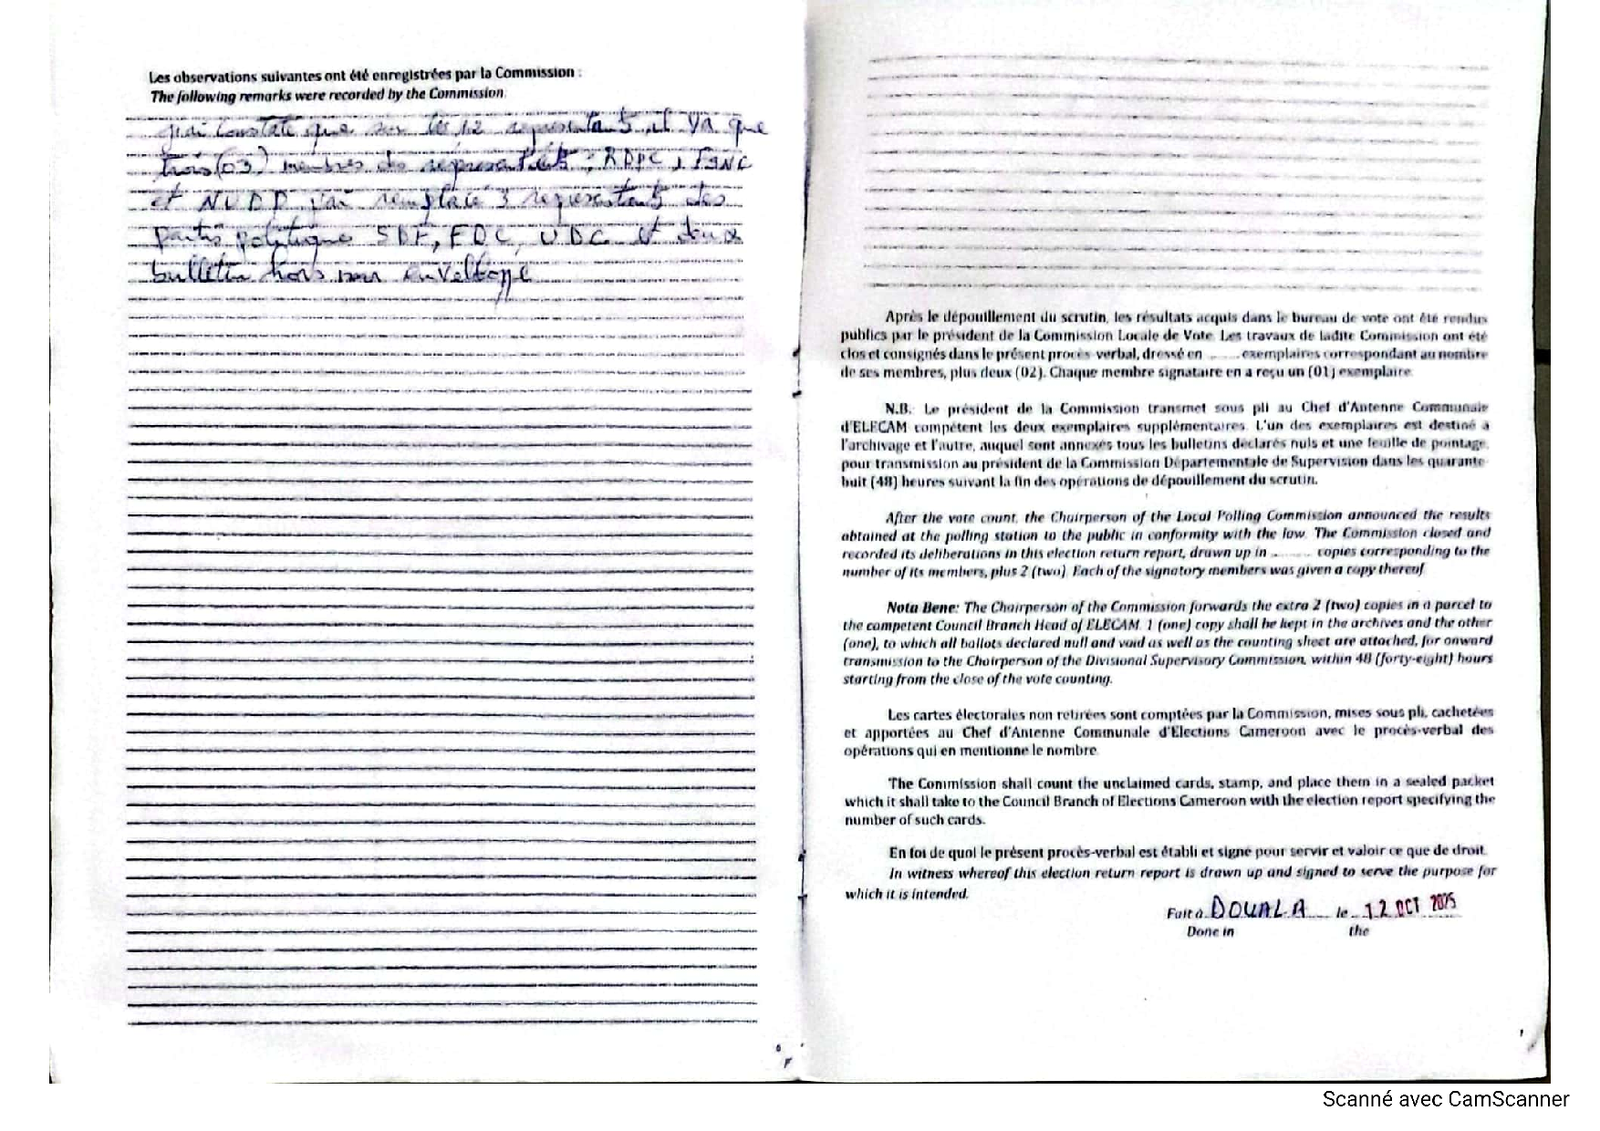 Les observations suivantes ont été enregistrées par la Commission :
The following remarks were recorded by the Commission.
j'ai constaté que sur les 12 représentants il ya que
trois (03) membres des représentants : RDPC, FSNC
et NUDP j'ai remplacé 3 représentants des
partis politique SDF, FDC, UDC et deux
bulletin hors enveloppe
Après le dépouillement du scrutin, les résultats acquis dans le bureau de vote ont été rendus
publics par le président de la Commission Locale de Vote. Les travaux de ladite Commission ont été
clos et consignés dans le présent procès-verbal, dressé en ........ exemplaires correspondant au nombre
de ses membres, plus deux (02). Chaque membre signataire en a reçu un (01) exemplaire.
N.B. Le président de la Commission transmet sous pli au Chef d'Antenne Communale
d'ELECAM compétent les deux exemplaires supplémentaires. L'un des exemplaires est destiné à
l'archivage et l'autre, auquel sont annexés tous les bulletins déclarés nuls et une feuille de pointage,
pour transmission au président de la Commission Départementale de Supervision dans les quarante-
huit (48) heures suivant la fin des opérations de dépouillement du scrutin.
After the vote count, the Chairperson of the Local Polling Commission announced the results
obtained at the polling station to the public in conformity with the law. The Commission closed and
recorded its deliberations in this election return report, drawn up in ......... copies corresponding to the
number of its members, plus 2 (two). Each of the signatory members was given a copy thereof.
Nota Bene: The Chairperson of the Commission forwards the extra 2 (two) copies in a parcel to
the competent Council Branch Head of ELECAM. 1 (one) copy shall be kept in the archives and the other
(one), to which all ballots declared null and void as well as the counting sheet are attached, for onward
transmission to the Chairperson of the Divisional Supervisory Commission, within 48 (forty-eight) hours
starting from the close of the vote counting.
Les cartes électorales non retirées sont comptées par la Commission, mises sous pli, cachetées
et apportées au Chef d'Antenne Communale d'Elections Cameroon avec le procès-verbal des
opérations qui en mentionne le nombre.
The Commission shall count the unclaimed cards, stamp, and place them in a sealed packet
which it shall take to the Council Branch of Elections Cameroon with the election report specifying the
number of such cards.
En foi de quoi le présent procès-verbal est établi et signé pour servir et valoir ce que de droit.
In witness whereof this election return report is drawn up and signed to serve the purpose for
which it is intended.
Fait à DOUALA le 12 OCT 2025
Done in the
Scanné avec CamScanner